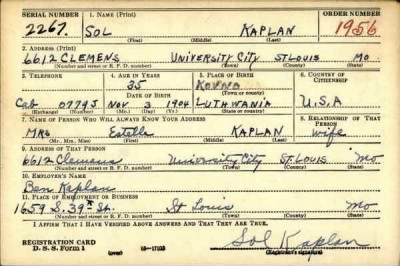 SERIAL NUMBER 1. NAME (Print) ORDER NUMBER
2267. SOL KAPLAN 1956
(First) (Middle) (Last)
2. ADDRESS (Print)
6612 CLEMENS University City St Louis Mo
(Number and street or R. F. D. number) (Town) (County) (State)
3. TELEPHONE 4. AGE IN YEARS 5. PLACE OF BIRTH 6. COUNTRY OF CITIZENSHIP
35 KOVNO
DATE OF BIRTH (Town or county)
Cab 0779J Nov 3 1904 LUTHWANIA U.S.A
(Exchange) (Number) (Mo.) (Day) (Yr.) (State or country)
7. NAME OF PERSON WHO WILL ALWAYS KNOW YOUR ADDRESS 8. RELATIONSHIP OF THAT PERSON
Mrs Estelle KAPLAN wife
(Mr., Mrs., Miss) (First) (Middle) (Last)
9. ADDRESS OF THAT PERSON
6612 Clemens University City St. Louis Mo
(Number and street or R. F. D. number) (Town) (County) (State)
10. EMPLOYER'S NAME
Ben Kaplan
11. PLACE OF EMPLOYMENT OR BUSINESS
1659 S. 39th St. St Louis Mo
(Number and street or R. F. D. number) (Town) (County) (State)
I AFFIRM THAT I HAVE VERIFIED ABOVE ANSWERS AND THAT THEY ARE TRUE.
REGISTRATION CARD
D. S. S. Form 1 (over) Sol Kaplan
(Registrant's signature)